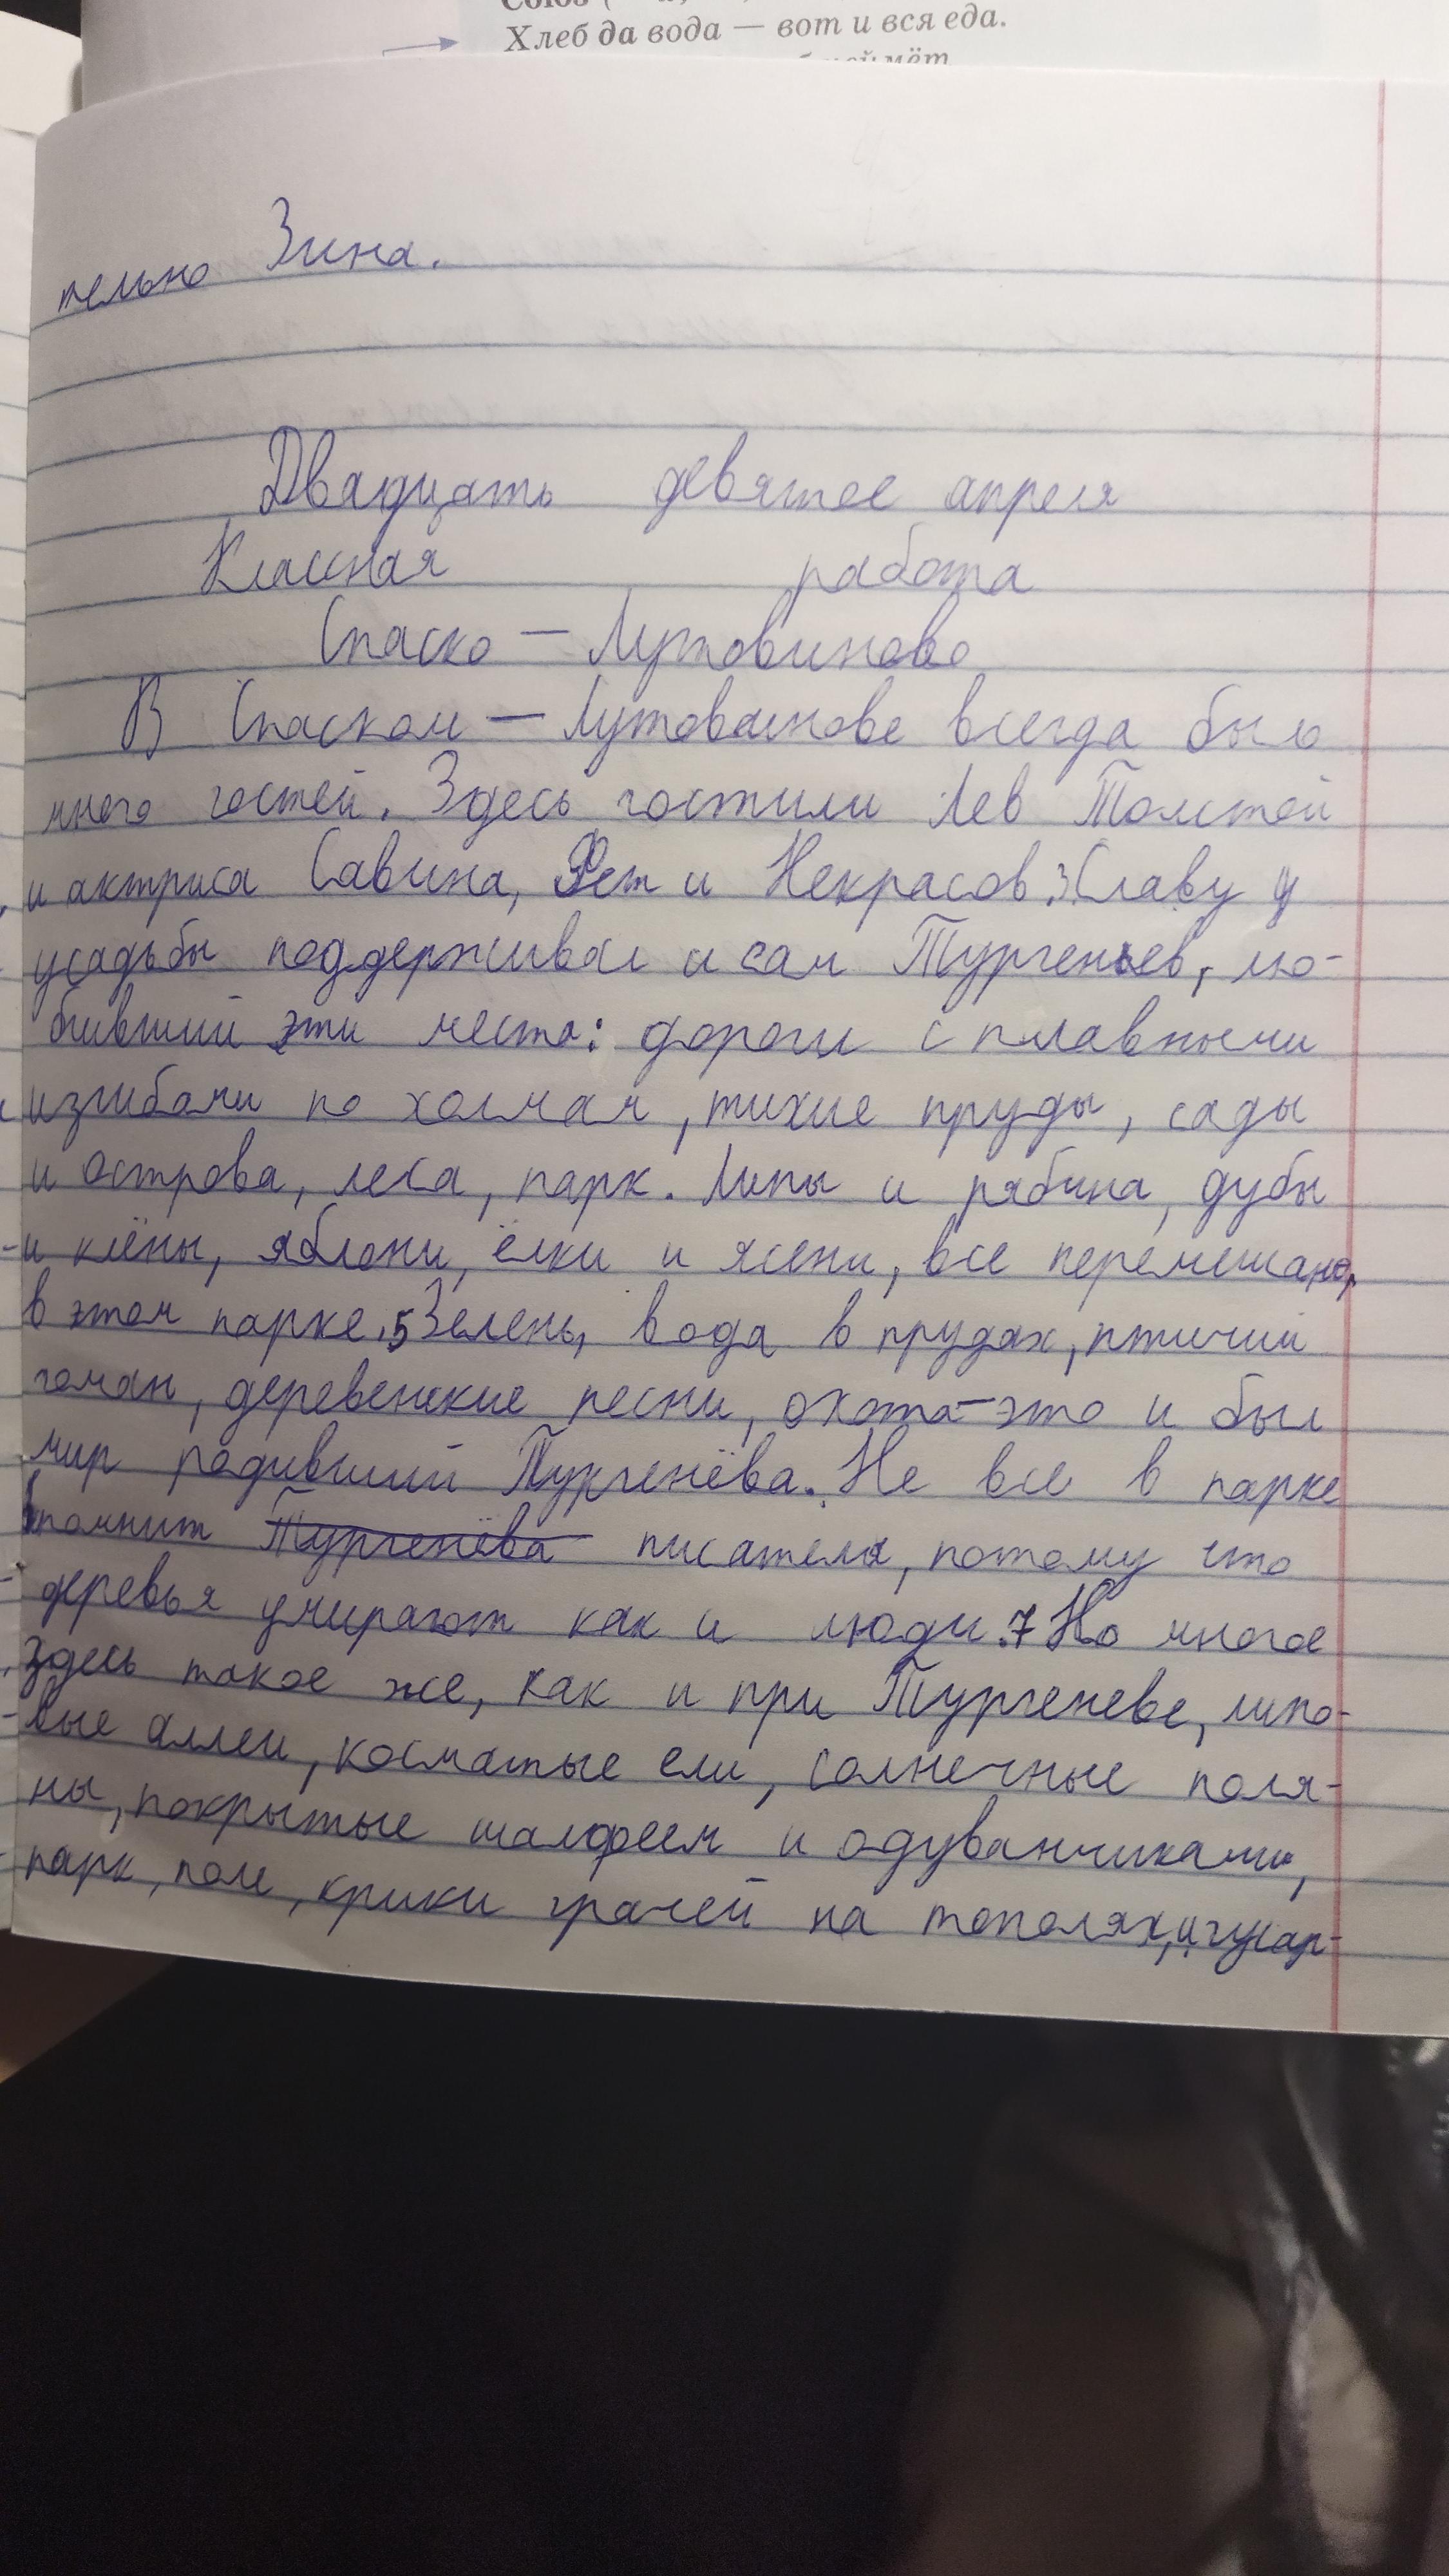 Хлеб да вода — вот и вся еда.
тельно Зина.
Двадцать девятое апреля
Классная работа
Спаско - Лутовиново
В Спаском - Лутовинове всегда было
много гостей. Здесь гостили Лев Толстой
и актриса Савина, Фет и Некрасов. 3 Славу у
усадьбы поддерживал и сам Тургеньев, лю-
бивший эти места: дороги с плавными
изгибами по холмам, тихие пруды, сады
и острова, леса, парк. Липы и рябина, дубы
и клёны, яблони, ёлки и ясени, все перемешано,
в этом парке. 5 Зелень, вода в прудах, птичий
гомон, деревенские песни, охота - это и был
мир родивший Тургенёва. Не все в парке
помнит Тургенёва писателя, потому что
деревья умирают как и люди. 7 Но многое
здесь такое же, как и при Тургеневе, липо-
вые аллеи, косматые ели, солнечные поля-
ны, покрытые шалфеем и одуванчиками,
парк, поле, крики грачей на тополях,